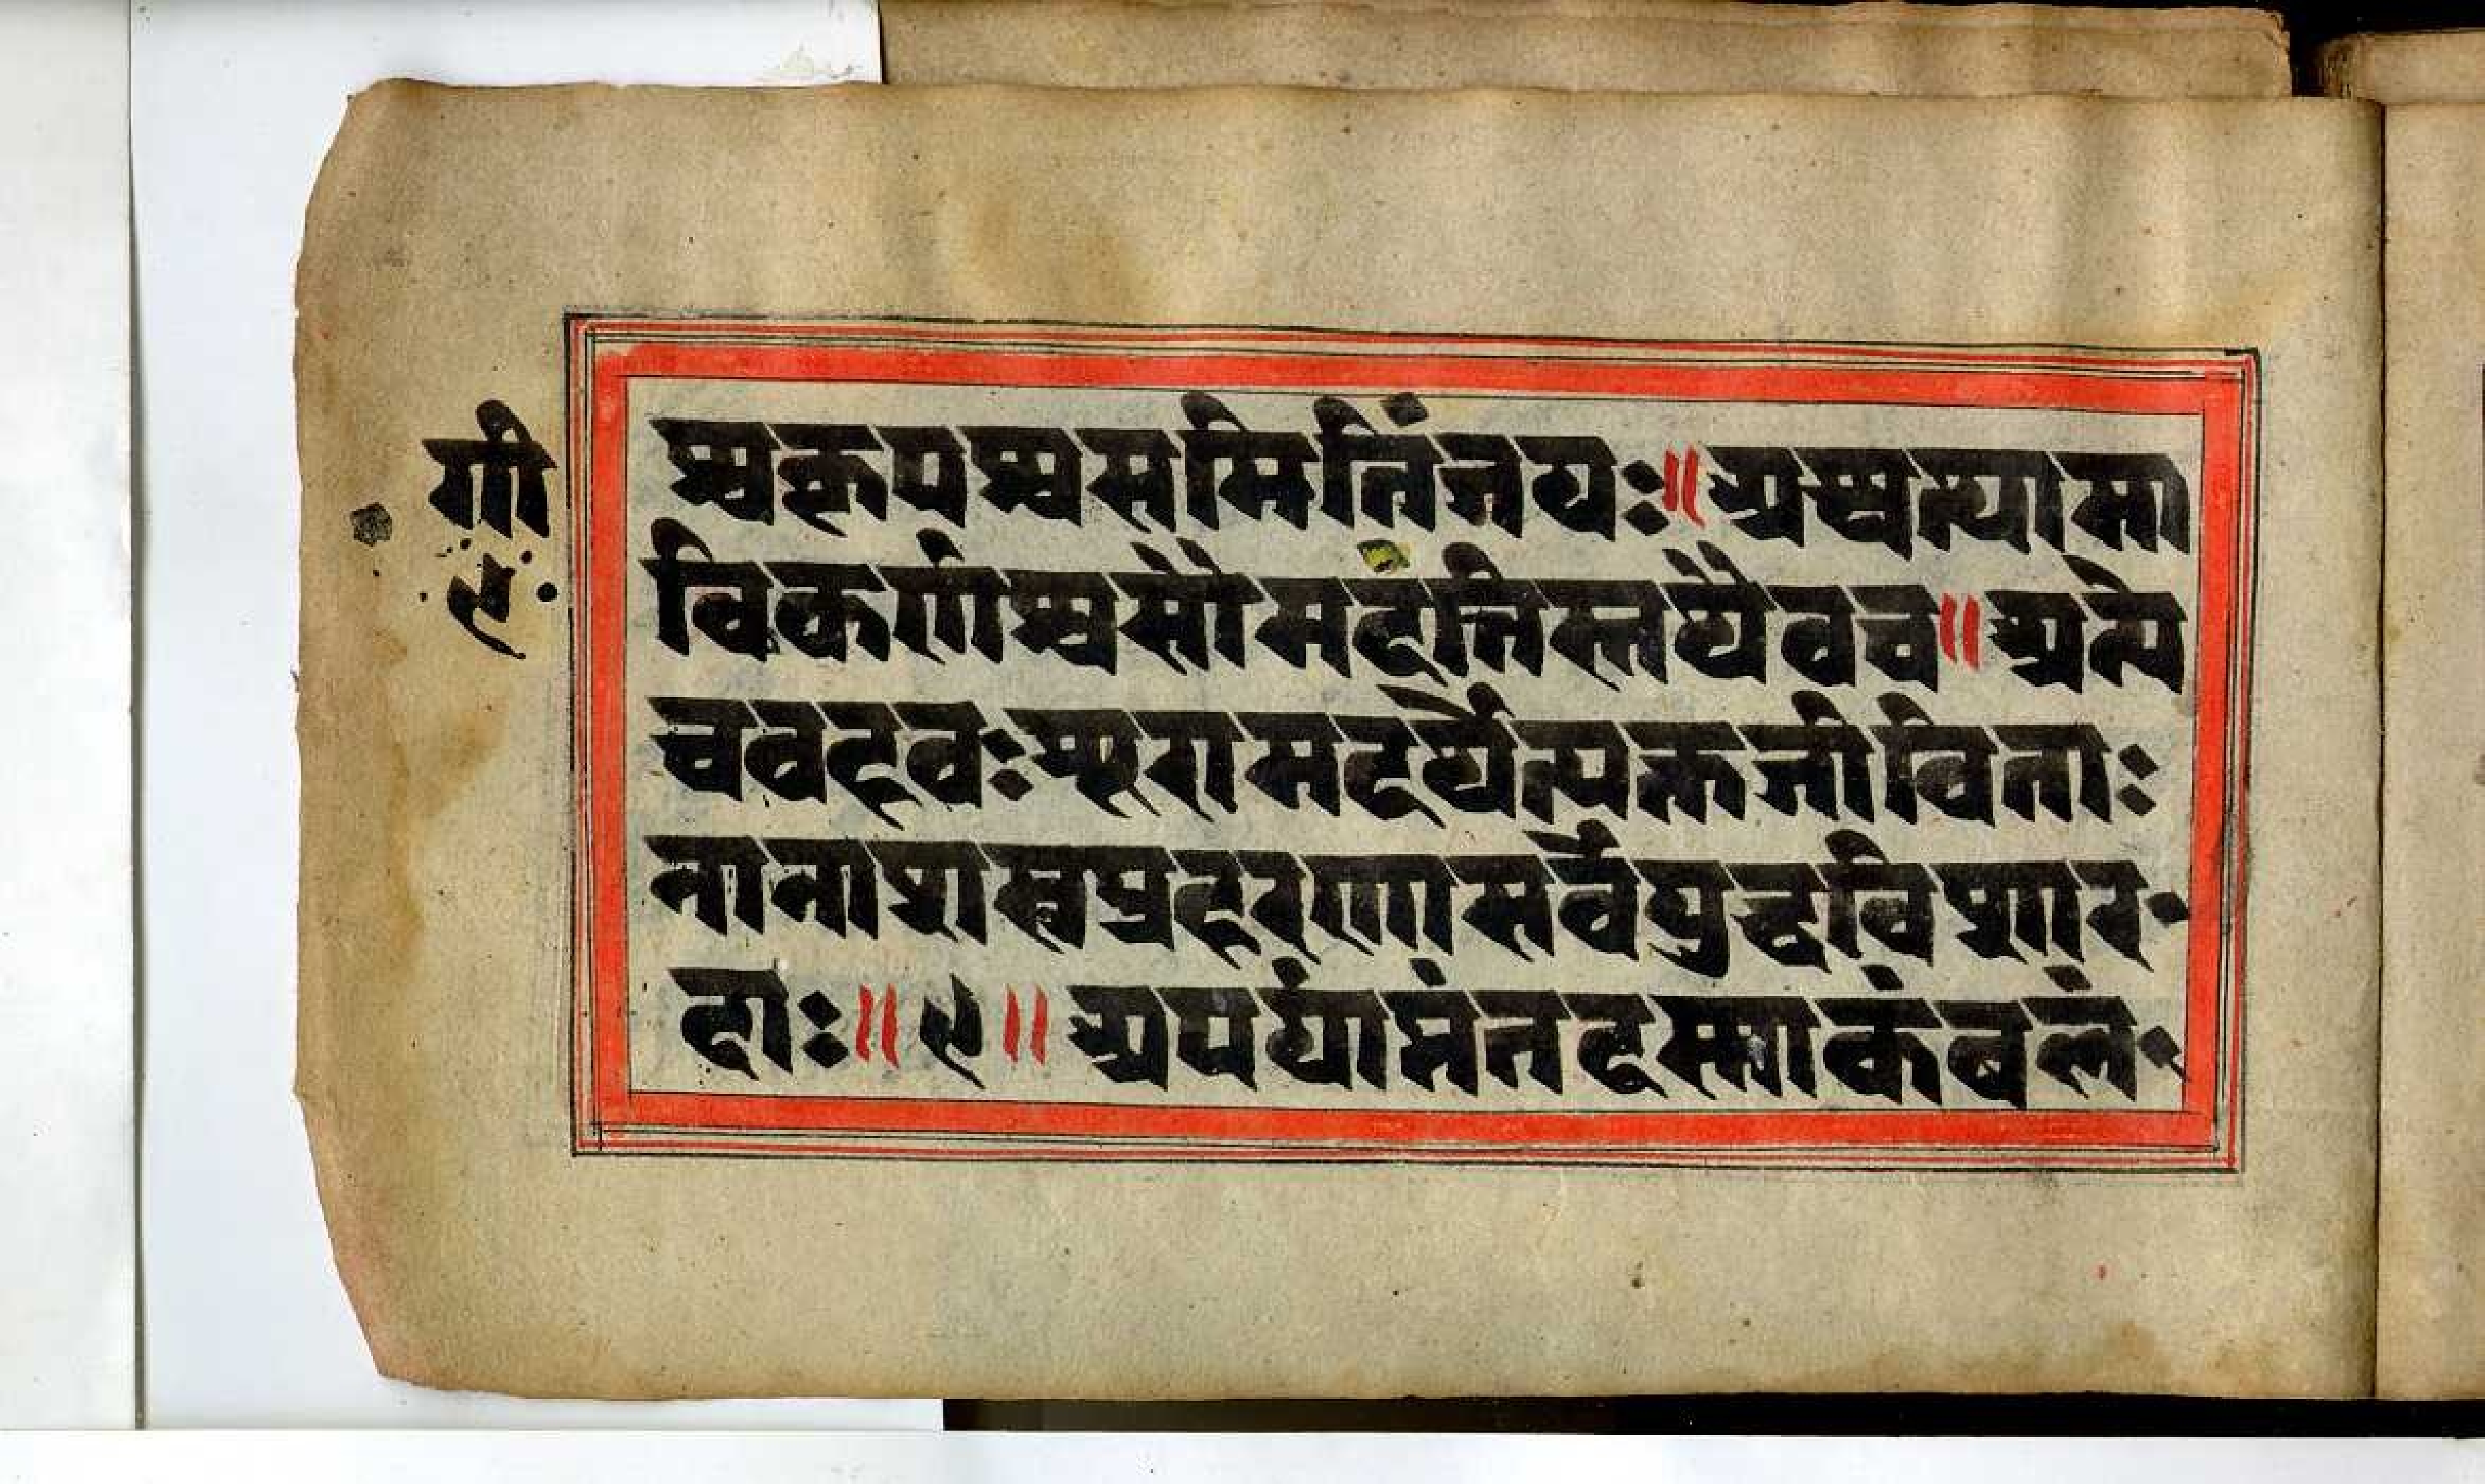 गी
९
श्चकृपश्चसमितिंजयः॥अश्वत्थामा
विकर्णश्चसौमदत्तिस्तथैवच॥अन्ये
चवहवःशूरामदर्थेत्यक्तजीविताः
नानाशस्त्रप्रहरणासर्वेयुद्धविशार
दाः॥९॥अपर्याप्तंतदस्माकंबलं